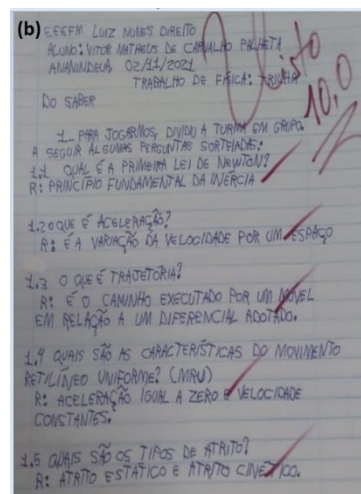 (b) EEEFM LUIZ NUNES DIREITO
ALUNO: VITOR MATHEUS DE CARVALHO PALHETA
ANANINDEUA, 02/11/2021
TRABALHO DE FÍSICA: TRILHA
DO SABER
Visto
10,0
1- PARA JOGARMOS, DIVIDIU A TURMA EM GRUPO.
A SEGUIR ALGUMAS PERGUNTAS SORTEADAS:
1.1 QUAL É A PRIMEIRA LEI DE NEWTON?
R: PRINCÍPIO FUNDAMENTAL DA INÉRCIA
1.2 O QUE É ACELERAÇÃO?
R: É A VARIAÇÃO DA VELOCIDADE POR UM ESPAÇO
1.3 O QUE É TRAJETÓRIA?
R: É O CAMINHO EXECUTADO POR UM MÓVEL
EM RELAÇÃO A UM DIFERENCIAL ADOTADO.
1.4 QUAIS SÃO AS CARACTERÍSTICAS DO MOVIMENTO
RETILÍNEO UNIFORME? (MRU)
R: ACELERAÇÃO IGUAL A ZERO E VELOCIDADE
CONSTANTES.
1.5 QUAIS SÃO OS TIPOS DE ATRITO?
R: ATRITO ESTÁTICO E ATRITO CINÉTICO.